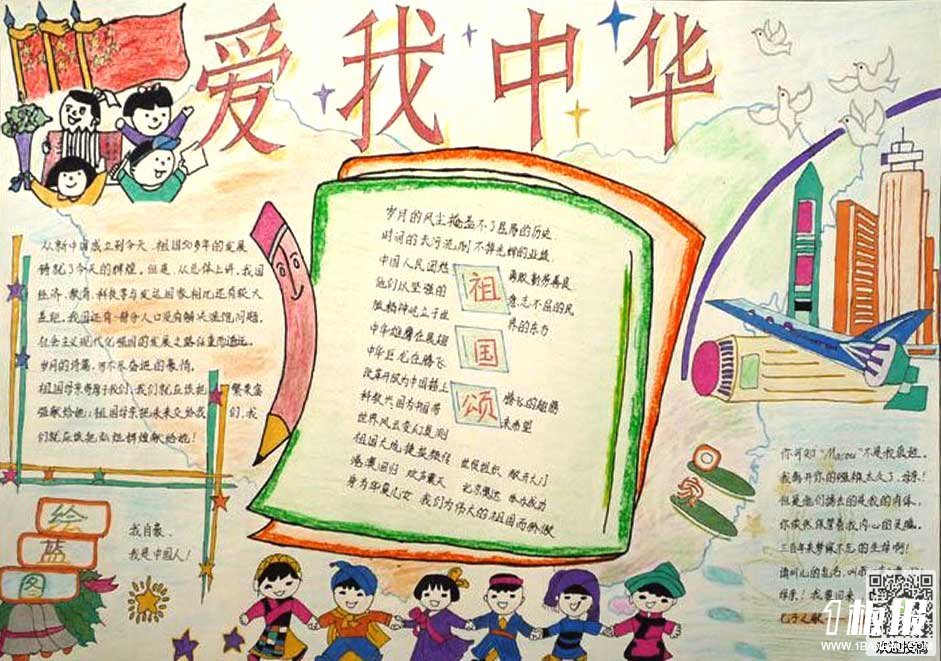 爱我中华
从新中国成立到今天，祖国50多年的发展
铸就了今天的辉煌。但是，从总体上讲，我国
经济、教育、科技等与发达国家相比还有较大
差距。我国还有一部分人口没有解决温饱问题。
社会主义现代化强国的发展之路任重而道远。
岁月的诗篇，写不尽奋进的豪情。
祖国母亲寄希于我们，我们就应该把繁荣富
强献给她；祖国母亲把未来交给我们，我
们就应该把灿烂辉煌献给她！
绘
蓝
图
我自豪、
我是中国人！
岁月的风尘掩盖不了屈辱的历史
时间的长河流削不掉光辉的业绩
中国人民固然 勇敢勤劳善良
他们以坚强的 意志不屈的民
族精神屹立于世 界的东方
中华雄鹰在展翅
中华巨龙在腾飞
改革开放为中国插上 腾飞的翅膀
科教兴国为中国带 来希望
世界风云变幻莫测
祖国大地捷英频传 世贸组织 敞开大门
港澳回归 欢声震天 北京奥运 举办成功
身为华夏儿女 我们为伟大的祖国而骄傲
祖
国
颂
你可知"Macau"不是我真姓。
我离开你的襁褓太久了，母亲！
但是他们掳去的是我的肉体，
你依然保管着我内心的灵魂。
三百年来梦寐不忘的生母啊！
请叫儿的乳名，叫我
母亲！我要回来
七子之歌
1板报
WWW.1BANBAO.COM
欢迎投稿